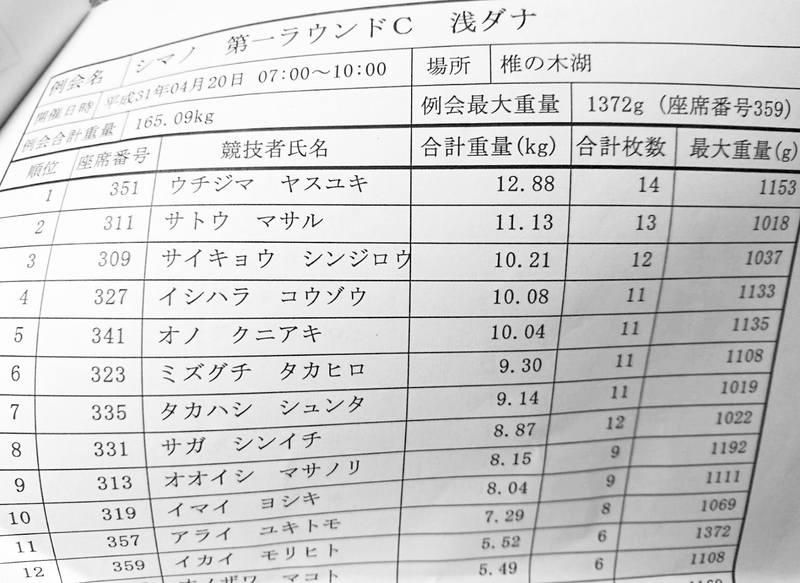 例会名 シマノ 第一ラウンドC 浅ダナ
開催日時 平成31年04月20日 07:00~10:00 場所 椎の木湖
例会合計重量 165.09kg 例会最大重量 1372g (座席番号359)
順位 座席番号 競技者氏名 合計重量(kg) 合計枚数 最大重量(g)
1 351 ウチジマ ヤスユキ 12.88 14 1153
2 311 サトウ マサル 11.13 13 1018
3 309 サイキョウ シンジロウ 10.21 12 1037
4 327 イシハラ コウゾウ 10.08 11 1133
5 341 オノ クニアキ 10.04 11 1135
6 323 ミズグチ タカヒロ 9.30 11 1108
7 335 タカハシ シュンタ 9.14 11 1019
8 331 サガ シンイチ 8.87 12 1022
9 313 オオイシ マサノリ 8.15 9 1192
10 319 イマイ ヨシキ 8.04 9 1111
11 357 アライ ユキトモ 7.29 8 1069
12 359 イカイ モリヒト 5.52 6 1372
マコト 5.49 6 1108